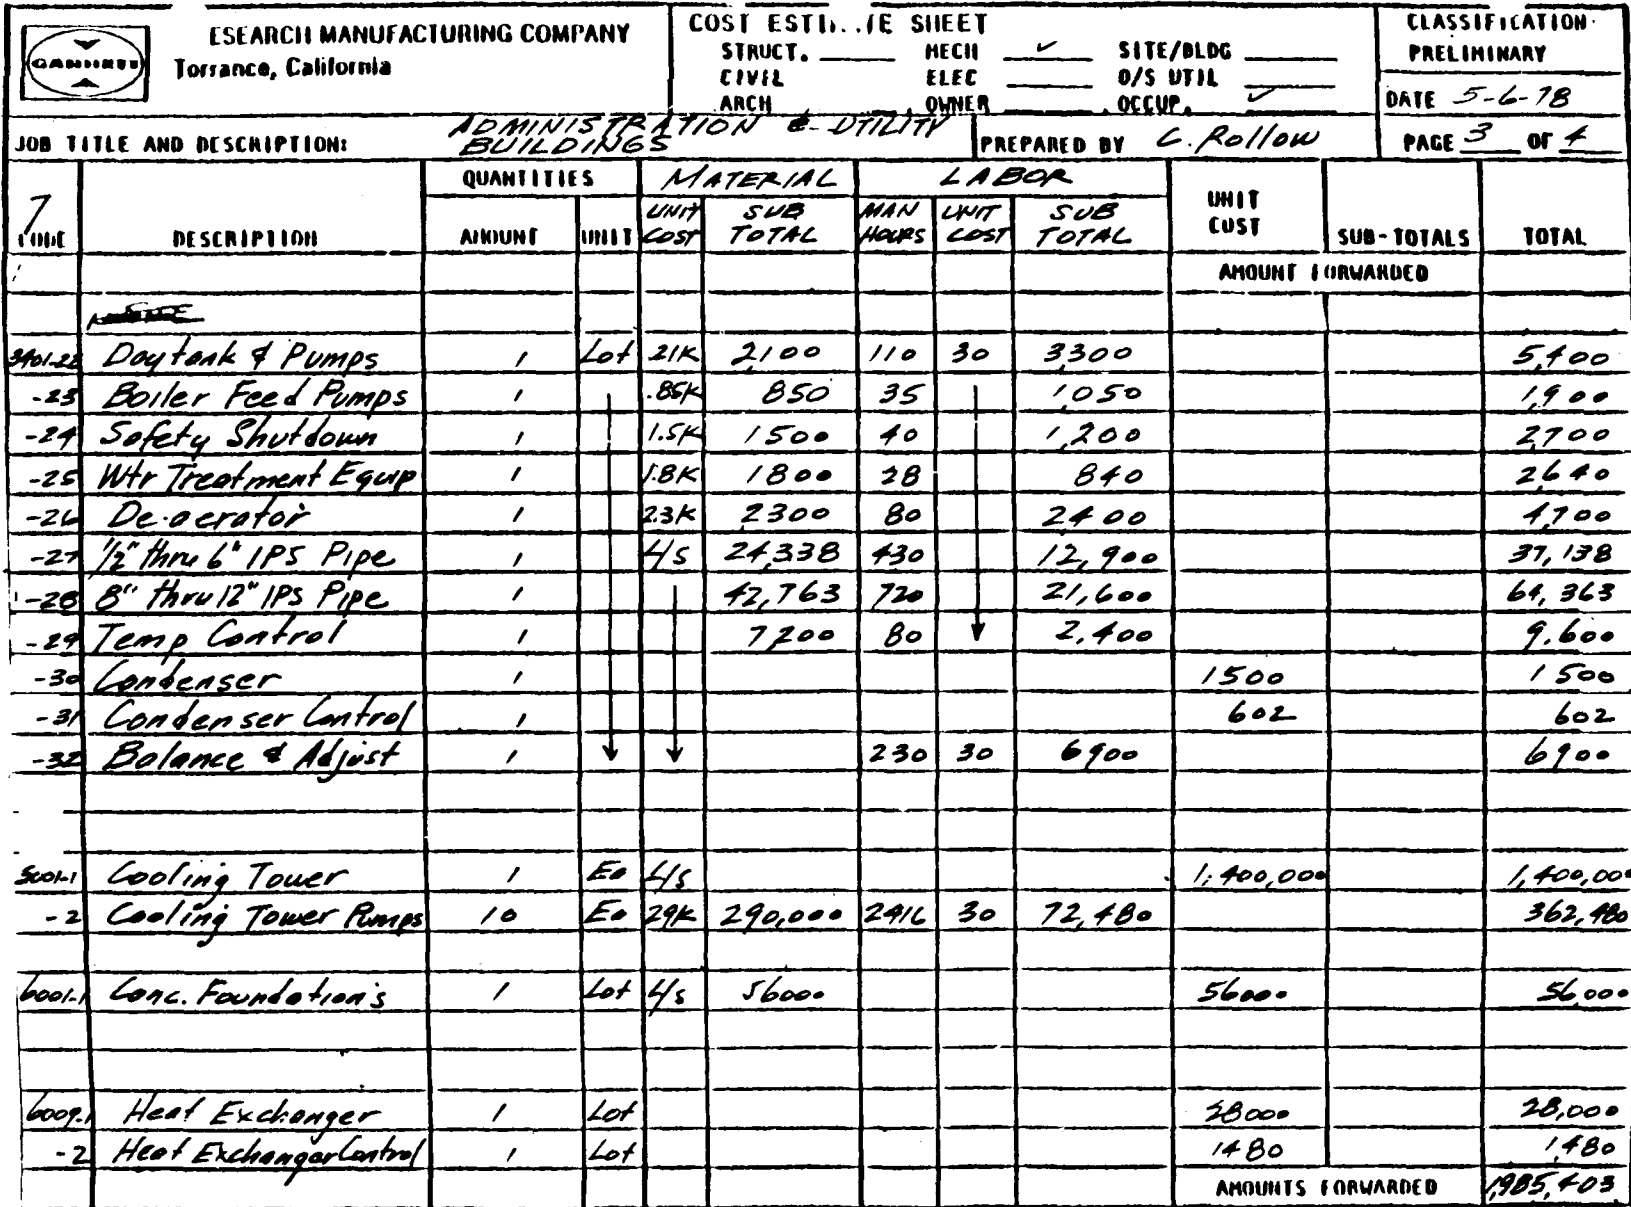 GARRETT
ESEARCH MANUFACTURING COMPANY
Torrance, California
COST ESTI...TE SHEET
STRUCT. ____ MECH ✓ SITE/BLDG ____
CIVIL ELEC ____ O/S UTIL ____
ARCH ____ OWNER ____ OCCUP. ✓
CLASSIFICATION
PRELIMINARY
DATE 5-6-78
JOB TITLE AND DESCRIPTION: ADMINISTRATION & UTILITY BUILDINGS
PREPARED BY C. Rollow
PAGE 3 OF 4
QUANTITIES MATERIAL LABOR
7 CODE DESCRIPTION AMOUNT UNIT UNIT COST SUB TOTAL MAN HOURS UNIT COST SUB TOTAL UNIT COST SUB-TOTALS TOTAL
AMOUNT FORWARDED
3401-22 Daytank & Pumps 1 Lot 21K 2,100 110 30 3300 5,400
-23 Boiler Feed Pumps 1 .85K 850 35 1050 1,900
-24 Safety Shutdown 1 1.5K 1500 40 1,200 2,700
-25 Wtr Treatment Equip 1 1.8K 1800 28 840 2640
-26 De-aerator 1 2.3K 2300 80 2400 4,700
-27 1/2" thru 6" IPS Pipe 1 L/S 24,338 430 12,900 37,138
-28 8" thru 12" IPS Pipe 1 42,763 720 21,600 64,363
-29 Temp Control 1 7200 80 2,400 9,600
-30 Condenser 1 1500 1500
-31 Condenser Control 1 602 602
-32 Balance & Adjust 1 230 30 6900 6900
5001-1 Cooling Tower 1 Ea L/S 1,400,000 1,400,000
-2 Cooling Tower Pumps 10 Ea 29K 290,000 2416 30 72,480 362,480
6001-1 Conc. Foundation's 1 Lot L/S 56000 56000 56,000
6009-1 Heat Exchanger 1 Lot 28000 28,000
-2 Heat Exchanger Control 1 Lot 1480 1,480
AMOUNTS FORWARDED 1,985,403